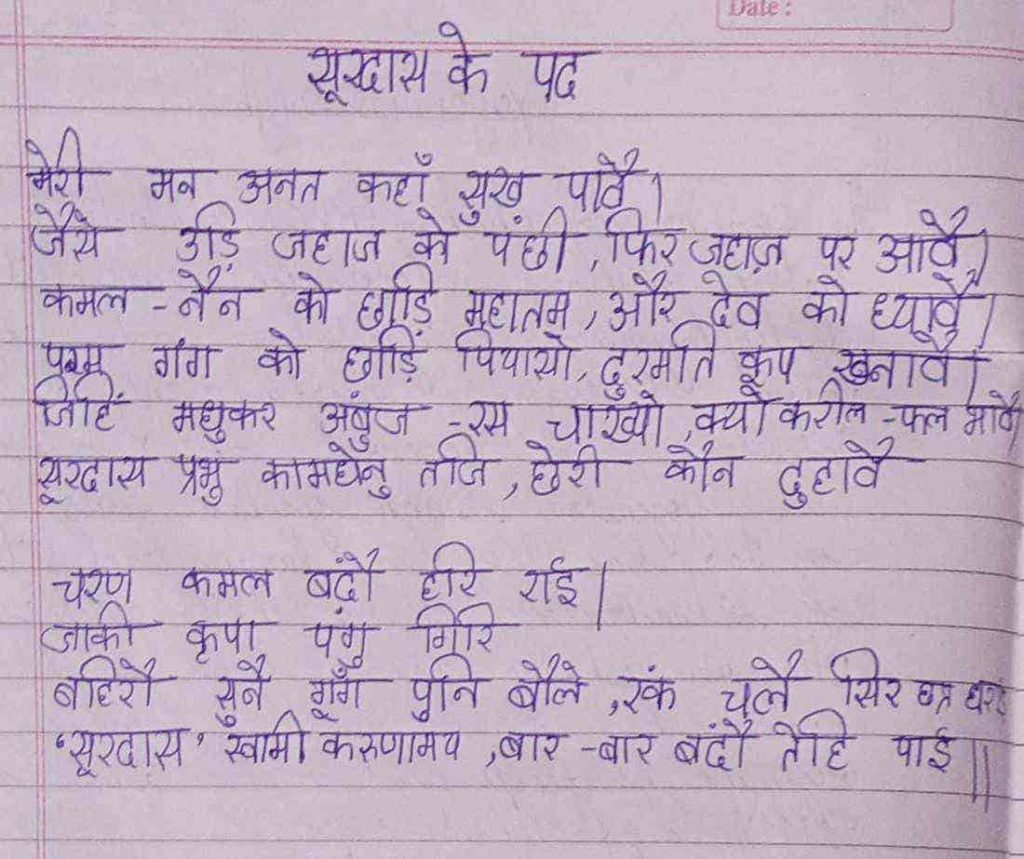 Date :
सूरदास के पद
मेरी मन अनत कहाँ सुख पावै।
जैसे उड़ि जहाज को पंछी, फिर जहाज़ पर आवै।
कमल - नैन को छाड़ि महातम, और देव को ध्यावै।
परम गंग को छाड़ि पियासो, दुरमति कूप खनावै।
जिहिं मधुकर अंबुज - रस चाख्यो, क्यों करील - फल भावै
सूरदास प्रभु कामधेनु तजि, छेरी कौन दुहावै
चरण कमल बंदौ हरि राई।
जाकी कृपा पंगु गिरि
बहिरौ सुनै गूँग पुनि बौले, रंक चलै सिर छत्र धराई
‘सूरदास’ स्वामी करुणामय, बार - बार बंदौ तेहि पाई॥